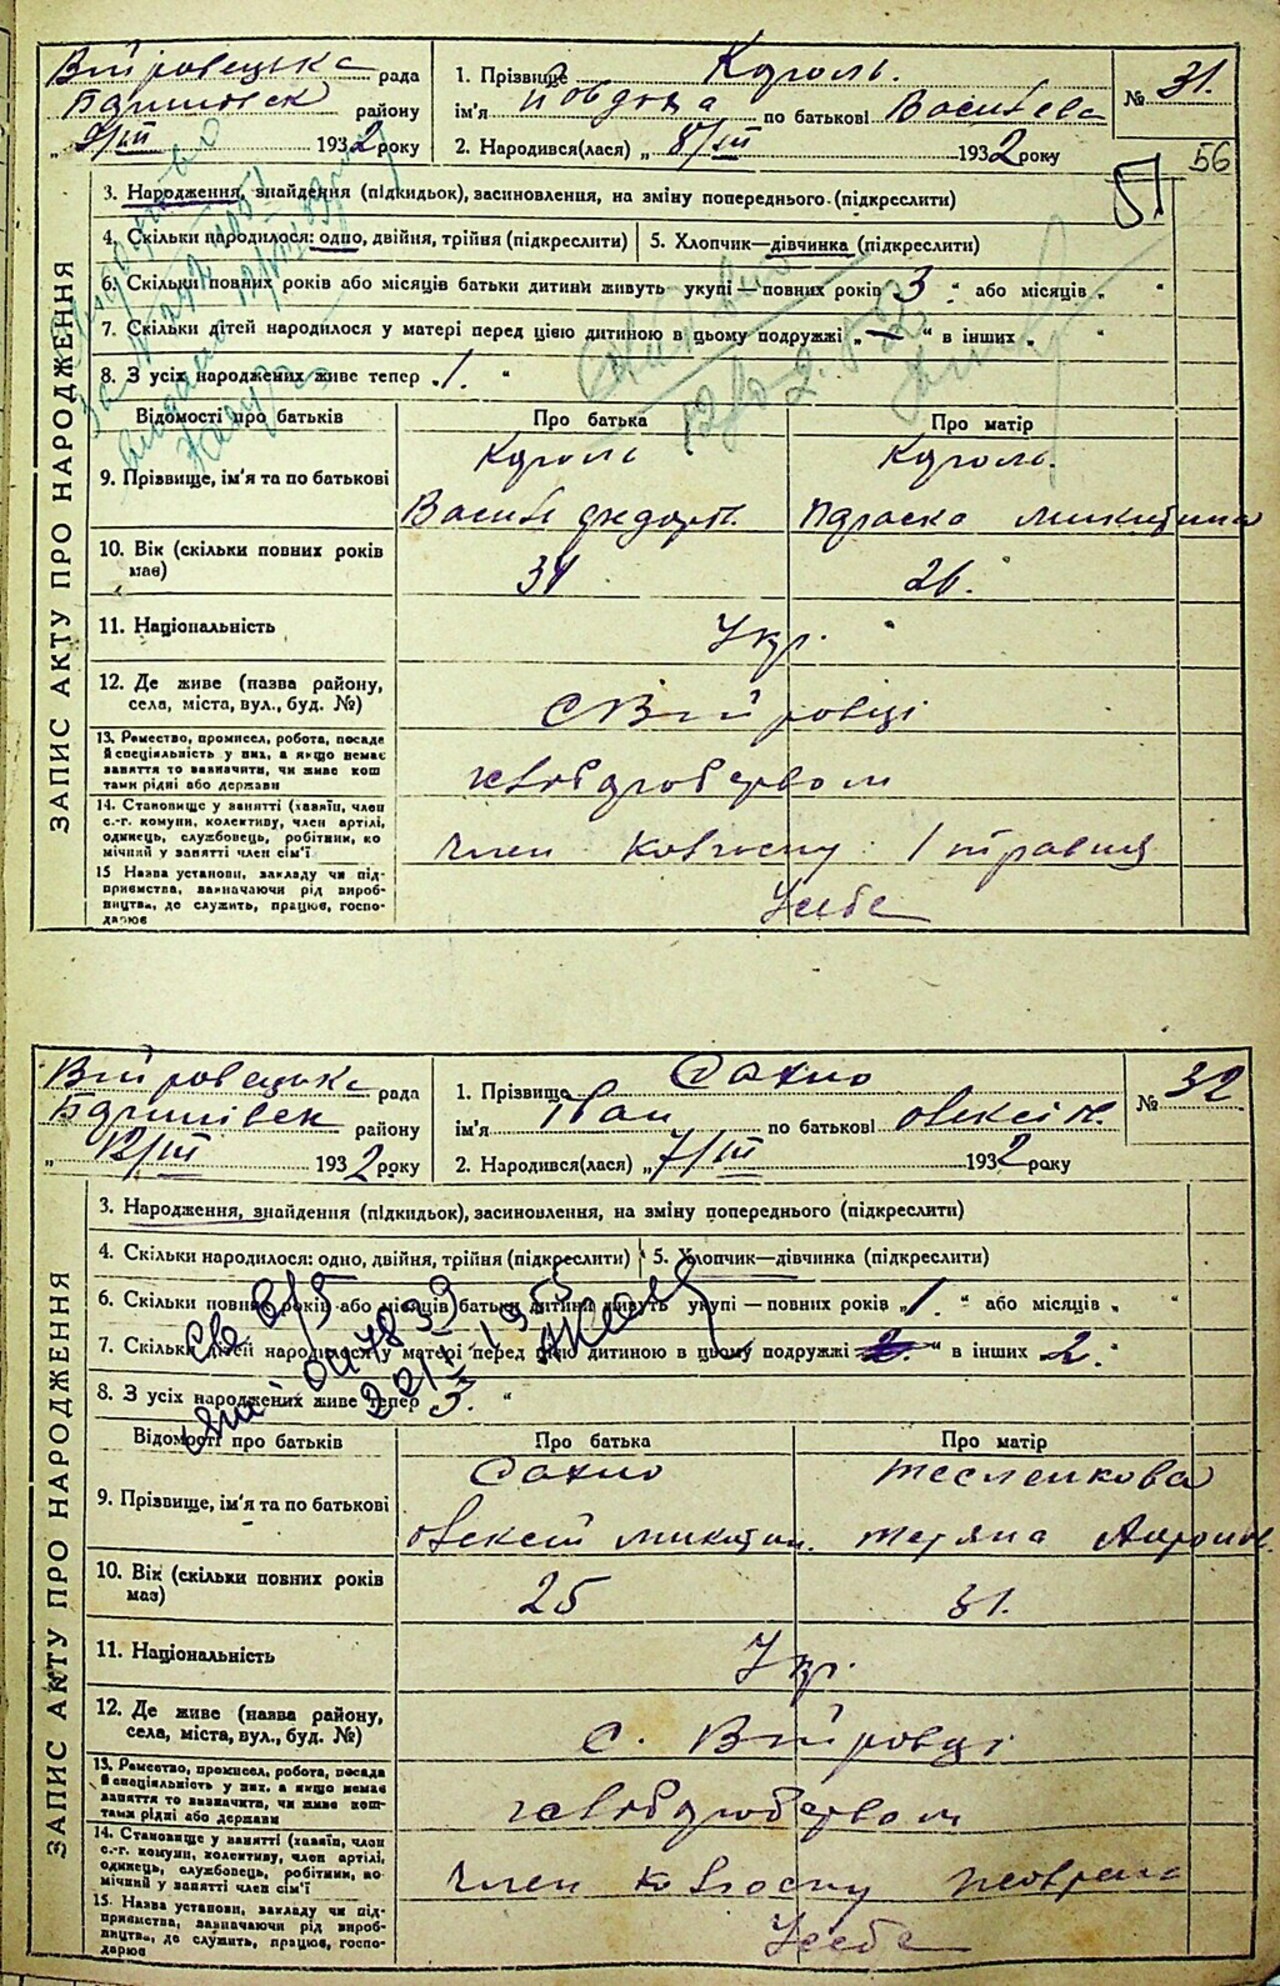 Війтовецька рада
Баришівськ району
„ 9/III 1932 року
1. Прізвище Король.
ім'я Йовдоха по батькові Василева
2. Народився(лася) „ 8/III 1932 року
№ 31.
56
57
ЗАПИС АКТУ ПРО НАРОДЖЕННЯ
3. Народження, знайдення (підкидьок), засиновлення, на зміну попереднього (підкреслити)
4. Скільки народилося: одно, двійня, трійня (підкреслити) 5. Хлопчик—дівчинка (підкреслити)
6. Скільки повних років або місяців батьки дитини живуть укупі — повних років 3 " або місяців „ "
7. Скільки дітей народилося у матері перед цією дитиною в цьому подружжі „ — " в інших „ "
8. З усіх народжених живе тепер „ 1. "
Відомості про батьків Про батька Про матір
9. Прізвище, ім'я та по батькові
Король Король.
Василь Федорів. Параска Микитина
10. Вік (скільки повних років має) 34 26.
11. Національність Укр.
12. Де живе (назва району, села, міста, вул., буд. №)
с Війтовці
13. Ремество, промисел, робота, посада
й спеціяльність у них, а якщо немає
заняття то зазначити, чи живе кош
тами рідні або держави
хліборобством
14. Становище у занятті (хазяїн, член
с.-г. комуни, колективу, член артілі,
одинець, службовець, робітник, по
мічний у занятті член сім'ї
член колгоспу 1 травня
15 Назва установи, закладу чи під-
приємства, зазначаючи рід вироб-
ництва, де служить, працює, госпо-
дарює
У себе
Війтовецька рада
Баришівськ району
„ 12/III 1932 року
1. Прізвище Сахно
ім'я Іван по батькові Олексів.
2. Народився(лася) „ 7/III 1932 року
№ 32
ЗАПИС АКТУ ПРО НАРОДЖЕННЯ
3. Народження, знайдення (підкидьок), засиновлення, на зміну попереднього (підкреслити)
4. Скільки народилося: одно, двійня, трійня (підкреслити) 5. Хлопчик—дівчинка (підкреслити)
6. Скільки повних років або місяців батьки дитини живуть укупі — повних років „ 1. " або місяців „ "
7. Скільки дітей народилося у матері перед цією дитиною в цьому подружжі " в інших 2. "
8. З усіх народжених живе тепер 3. "
Відомості про батьків Про батька Про матір
9. Прізвище, ім'я та по батькові
Сахно Тесленкова
Олексій Микитин. Тетяна
10. Вік (скільки повних років має) 25 31.
11. Національність Укр.
12. Де живе (назва району, села, міста, вул., буд. №)
с. Війтовці
13. Ремество, промисел, робота, посада
й спеціяльність у них, а якщо немає
заняття то зазначити, чи живе кош-
тами рідні або держави
хліборобством
14. Становище у занятті (хазяїн, член
с.-г. комуни, колективу, член артілі,
одинець, службовець, робітник, по-
мічний у занятті член сім'ї
член колгоспу
15. Назва установи, закладу чи під-
приємства, зазначаючи рід вироб-
ництва, де служить, працює, госпо-
дарює
У себе